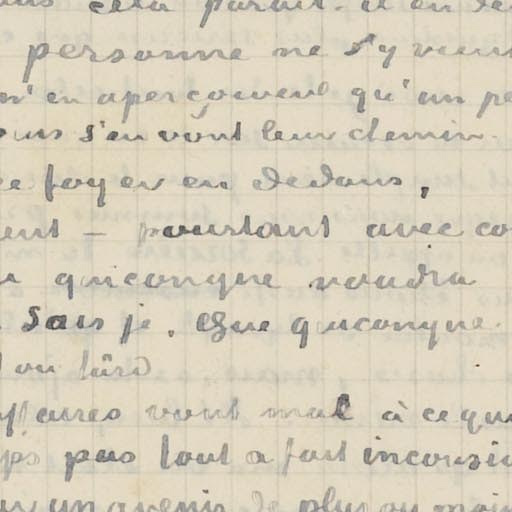 cela parait-il en de
personne ne s'y vient
n'en aperçoivent qu'un pe
ous s'en vont leur chemin.
ce foyer en dedans,
ent — pourtant avec co
quiconque voudra
sais je. Que quiconque
ou tard
affaires vont mal à ce que
ps pas tout a fait
un avenir de plus ou moins